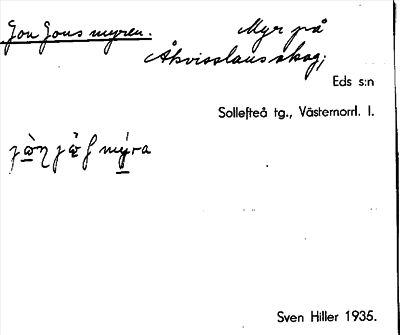 Jon Jons myren. Myr på
Åkvisslans skog;
Eds s:n
Sollefteå tg., Västernorrl. l.
jὼn jὼʃ mýra
Sven Hiller 1935.